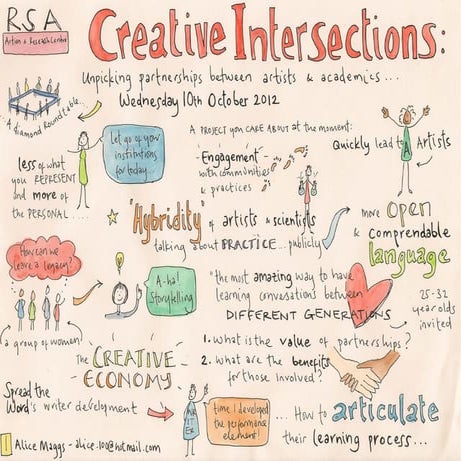 RSA
Action & Research Centre
Creative Intersections:
Unpicking partnerships between artists & academics...
Wednesday 10th October 2012
A diamond Roundtable...
less of what
you REPRESENT
and more of
the PERSONAL....
Let go of your
institutions
for today...
A PROJECT YOU CARE ABOUT at the moment:
Engagement
with communities
& practices
Quickly lead to Artists
A
"Hybridity" of artists & scientists
talking about PRACTICE... publicly
more open
& comprendable
language
How can we
leave a legacy?
a group of women!
A-ha!
Storytelling
"the most amazing way to have
learning conversations between
DIFFERENT GENERATIONS
25-32
year olds
invited
1. What is the value of partnerships?
2. What are the benefits
for those involved?
The CREATIVE
ECONOMY
Spread the
Word's writer development
WRITER
time I developed
the performance
element!
... How to articulate
their learning process...
Alice Maggs - alice.100@hotmail.com